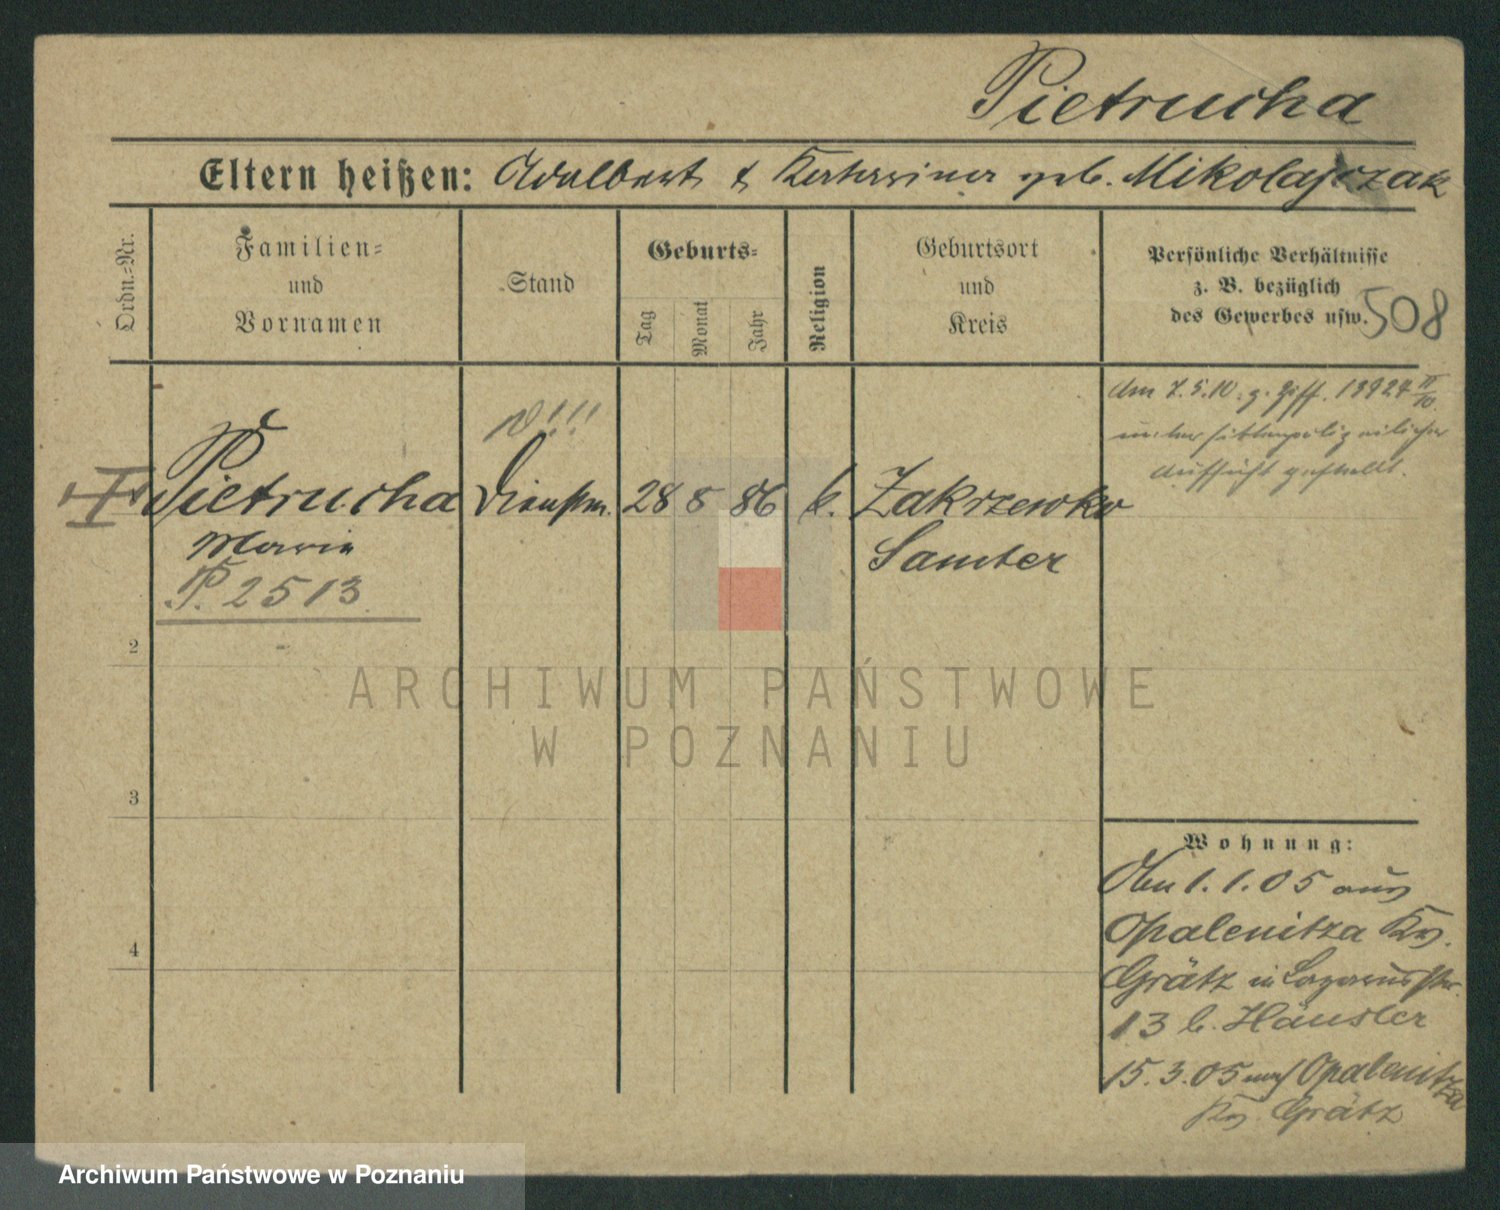 Pietrucha
Eltern heißen: Adalbert & Katharina geb. Mikolajczak
Ordn.-Nr.
Familien-
und
Vornamen
Stand
Geburts-
Tag
Monat
Jahr
Religion
Geburtsort
und
Kreis
Persönliche Verhältnisse
z. B. bezüglich
des Gewerbes usw.
508
Am 7.5.10. z. 13924 II/10.
unter sittenpolizeilicher
Aufsicht gestellt.
!!!
Pietrucha Dienstm. 28 8 86 k. Zakrzewko
Marie Samter
P. 2513
2
3
4
ARCHIWUM PAŃSTWOWE
W POZNANIU
Wohnung:
Am 1.1.05 aus
Opalenitza Kr.
Grätz in Lazarusstr.
13 b. Häusler
15.3.05 nach Opalenitza
Kr. Grätz
Archiwum Państwowe w Poznaniu